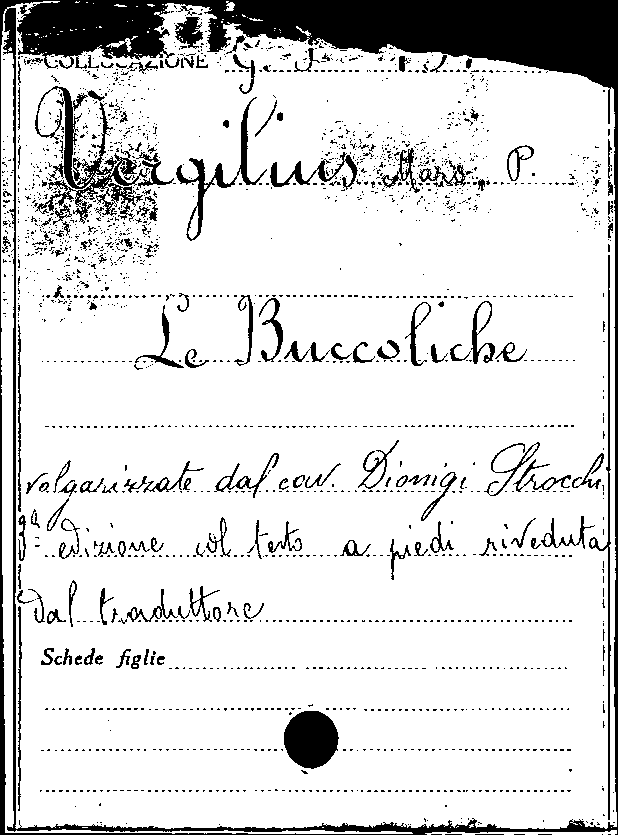 COLLOCAZIONE
Vergilius Maro, P.
Le Buccoliche
volgarizzate dal cav. Dionigi Strocchi
3ª edizione col testo a piedi riveduta
dal traduttore
Schede figlie